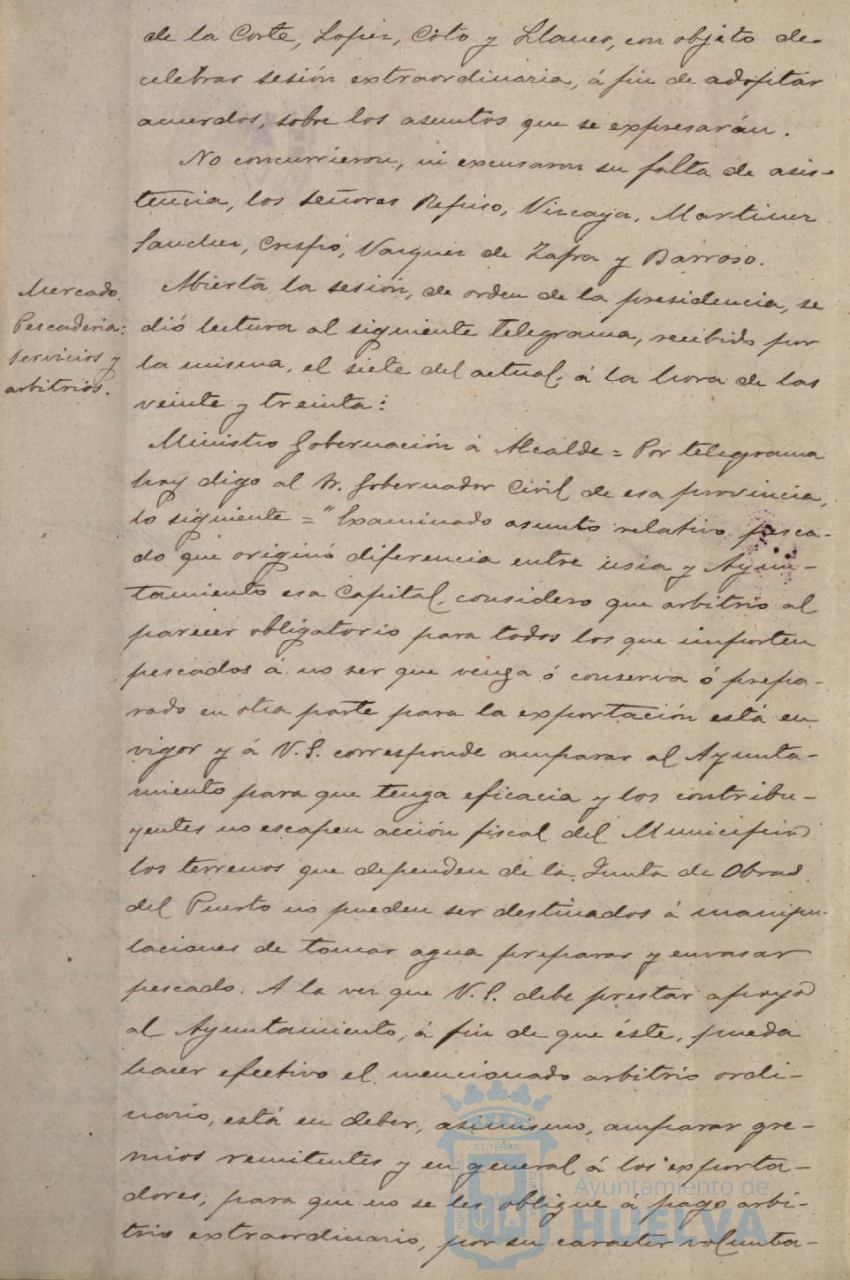 de la Corte, Lopez, Coto y Llanes, con objeto de
celebrar sesión extraordinaria, á fin de adoptar
acuerdos, sobre los asuntos que se expresarán.
No concurrieron, ni excusaron su falta de asis-
tencia, los señores Refiso, Vizcaya, Martinez
Sanchez, Crespo, Vazquez de Zafra y Barroso.
Mercado.
Pescaderia:
servicios y
arbitrios.
Abierta la sesión, de orden de la presidencia, se
dió lectura al siguiente telegrama, recibido por
la misma, el siete del actual, á la hora de las
veinte y treinta:
Ministro Gobernación á Alcalde = Por telegrama
hoy digo al Sr. Gobernador Civil de esa provincia,
lo siguiente = "Examinado asunto relativo pesca-
do que originó diferencia entre usia y Ayun-
tamiento esa Capital, considero que arbitrio al
parecer obligatorio para todos los que importen
pescados á no ser que venga ó conserva ó prepa-
rado en otra parte para la exportación está en
vigor y á V.S. corresponde amparar al Ayunta-
miento para que tenga eficacia y los contribu-
yentes no escapen acción fiscal del Municipio
los terrenos que dependen de la Junta de Obras
del Puerto no pueden ser destinados á manipu-
laciones de tomar agua preparar y envasar
pescado. A la vez que V.S. debe prestar apoyo
al Ayuntamiento, á fin de que éste, pueda
hacer efectivo el mencionado arbitrio ordi-
nario, está en deber, asimismo, amparar gre-
mios remitentes y en general á los exporta-
dores, para que no se les obligue á pago arbi-
trio extraordinario, por su caracter volunta-
Ayuntamiento de
HUELVA